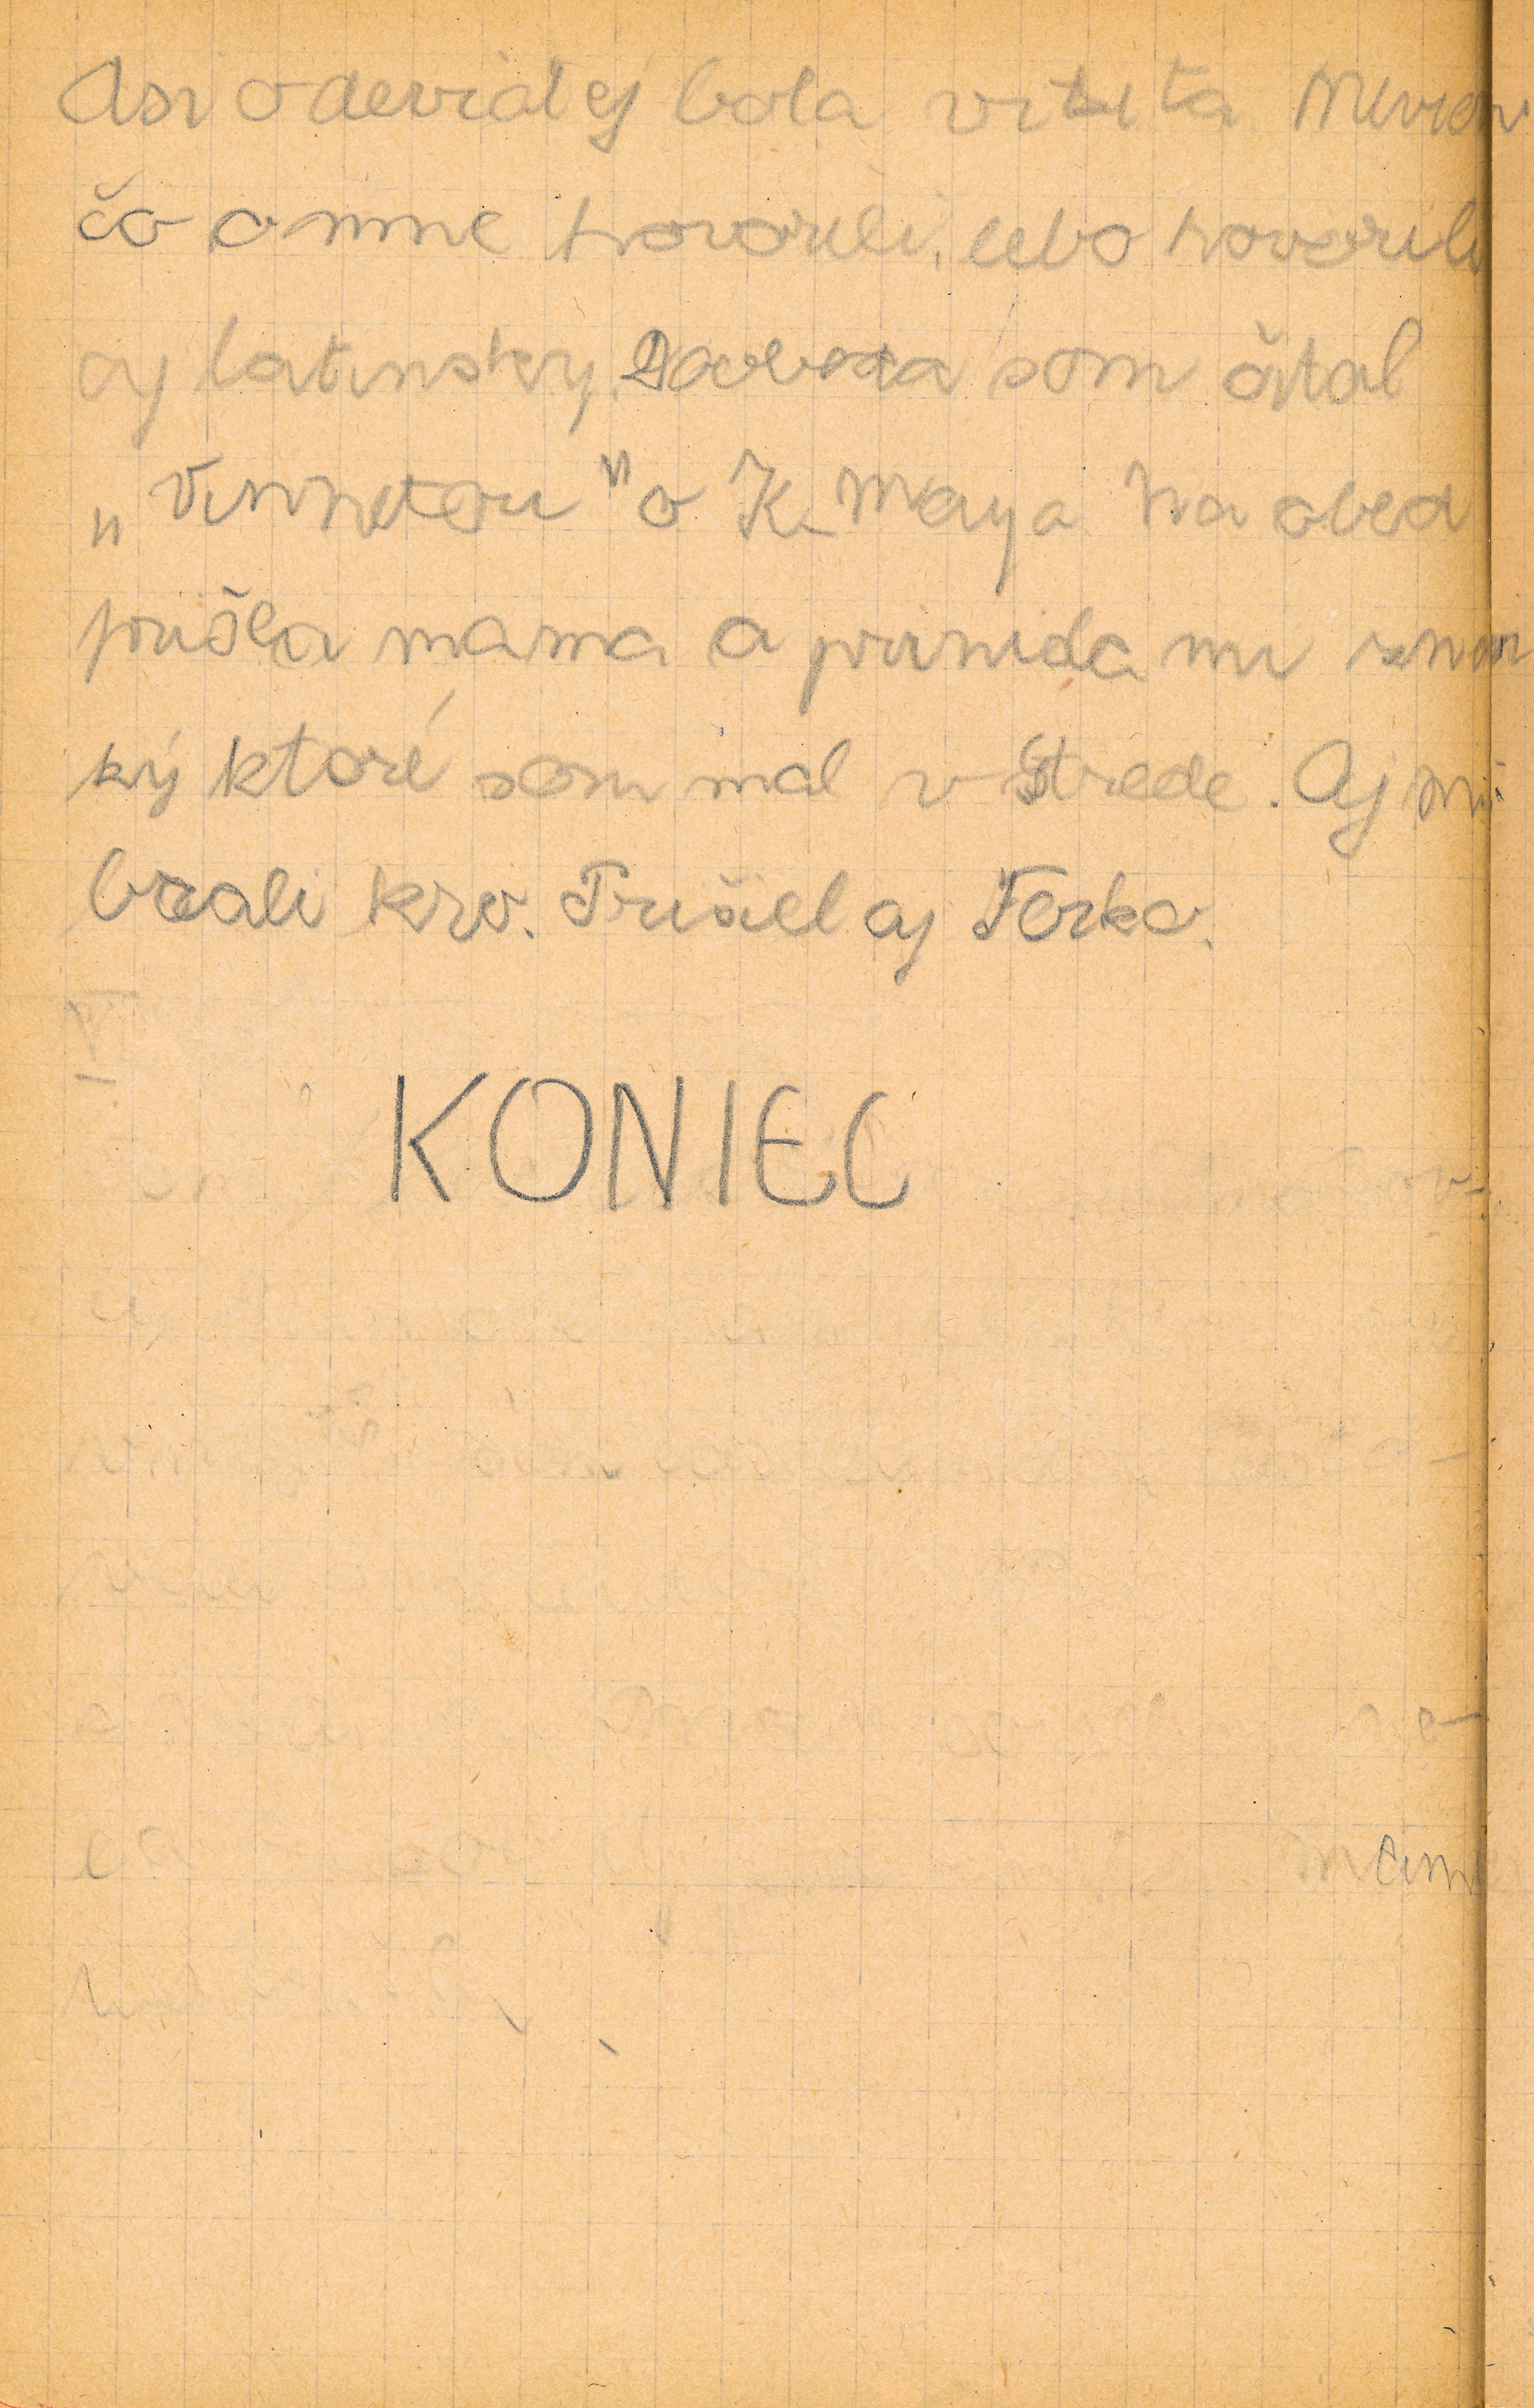 Asi o deviatej bola vizita Neviem
čo o mne hovorili, lebo hovorili
aj latinsky. Doobeda som čítal
„Vinnetou" o K. Maya Na obed
prišla mama a priniesla mi znám
ký ktoré som mal v Strede. Aj mi
brali krv. Prišiel aj Ferko.
KONIEC